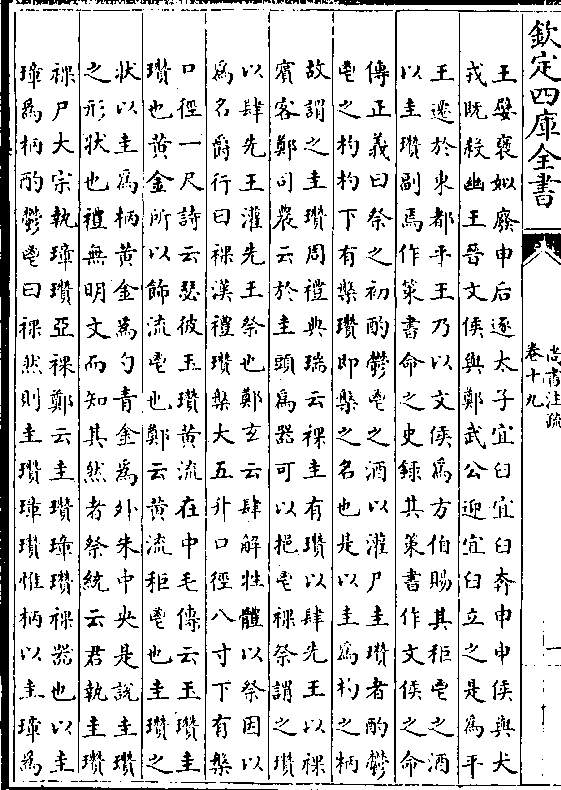 欽定四庫全書
尚書注疏
卷十九
一
王嬖褒姒廢申后逐太子宜臼宜臼奔申申侯與犬
戎既殺幽王晉文侯與鄭武公迎宜臼立之是為平
王遷於東都平王乃以文侯為方伯賜其秬鬯之酒
以圭瓚副焉作策書命之史録其策書作文侯之命
傳正義曰祭之初酌鬱鬯之酒以灌尸圭瓚者酌鬱
鬯之杓杓下有槃瓚即槃之名也是以圭為杓之柄
故謂之圭瓚周禮典瑞云祼圭有瓚以肆先王以祼
賓客鄭司農云於圭頭為器可以挹鬯祼祭謂之瓚
以肆先王灌先王祭也鄭玄云肆解牲體以祭因以
為名爵行曰祼漢禮瓚槃大五升口徑八寸下有槃
口徑一尺詩云瑟彼玉瓚黃流在中毛傳云玉瓚圭
瓚也黃金所以飾流鬯也鄭云黃流秬鬯也圭瓚之
狀以圭為柄黃金為勺青金為外朱中央是說圭瓚
之形狀也禮無明文而知其然者祭統云君執圭瓚
祼尸大宗執璋瓚亞祼鄭云圭瓚璋瓚祼器也以圭
璋為柄酌鬱鬯曰祼然則圭瓚璋瓚惟柄以圭璋為